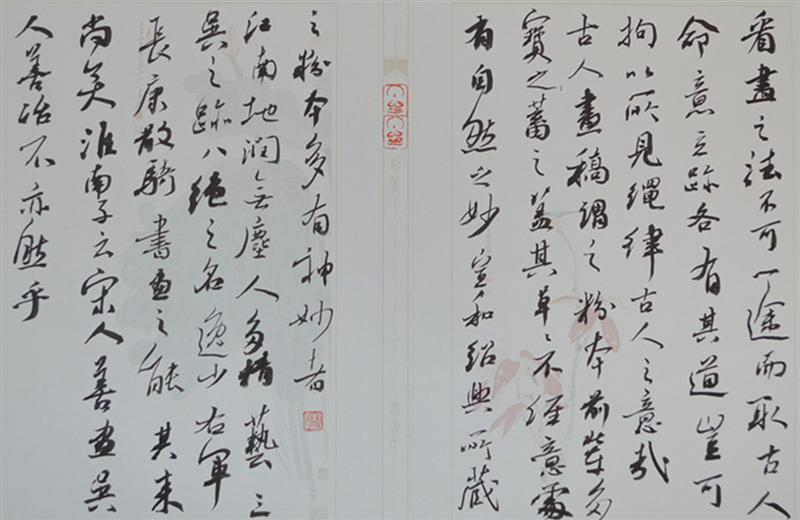 看畫之法不可一途而取古人
命意立跡各有其道豈可
拘以所見繩律古人之意哉
古人畫稿謂之粉本前輩多
寶之蓄之蓋其草〻不經意處
有自然之妙宣和紹興所藏
之粉本多有神妙者
江南地潤無塵人多精藝三
吳之跡八絕之名逸少右軍
長康散騎書畫之能其来
尚矣淮南子云宋人善畫吳
人善冶不亦然乎